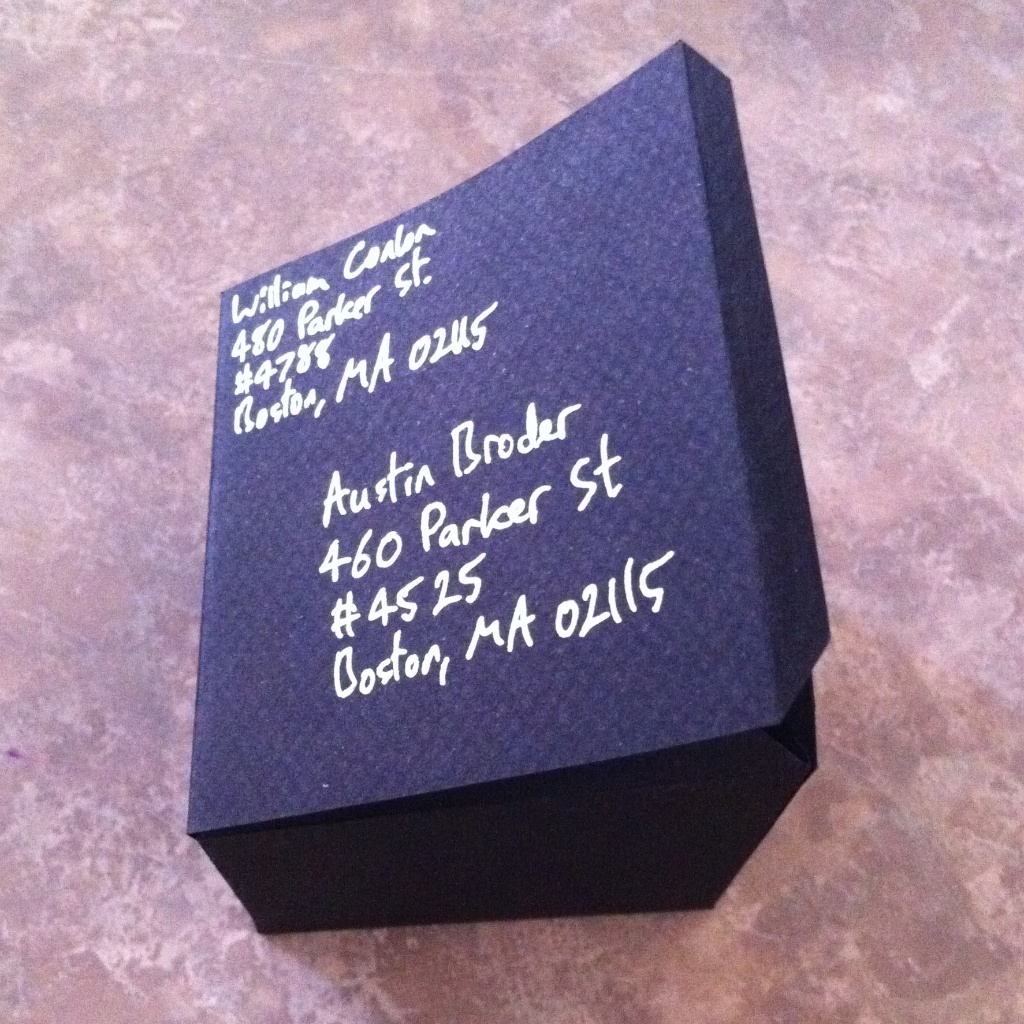 William Conlon
480 Parker St.
#4788
Boston, MA 02115
Austin Broder
460 Parker St
#4525
Boston, MA 02115